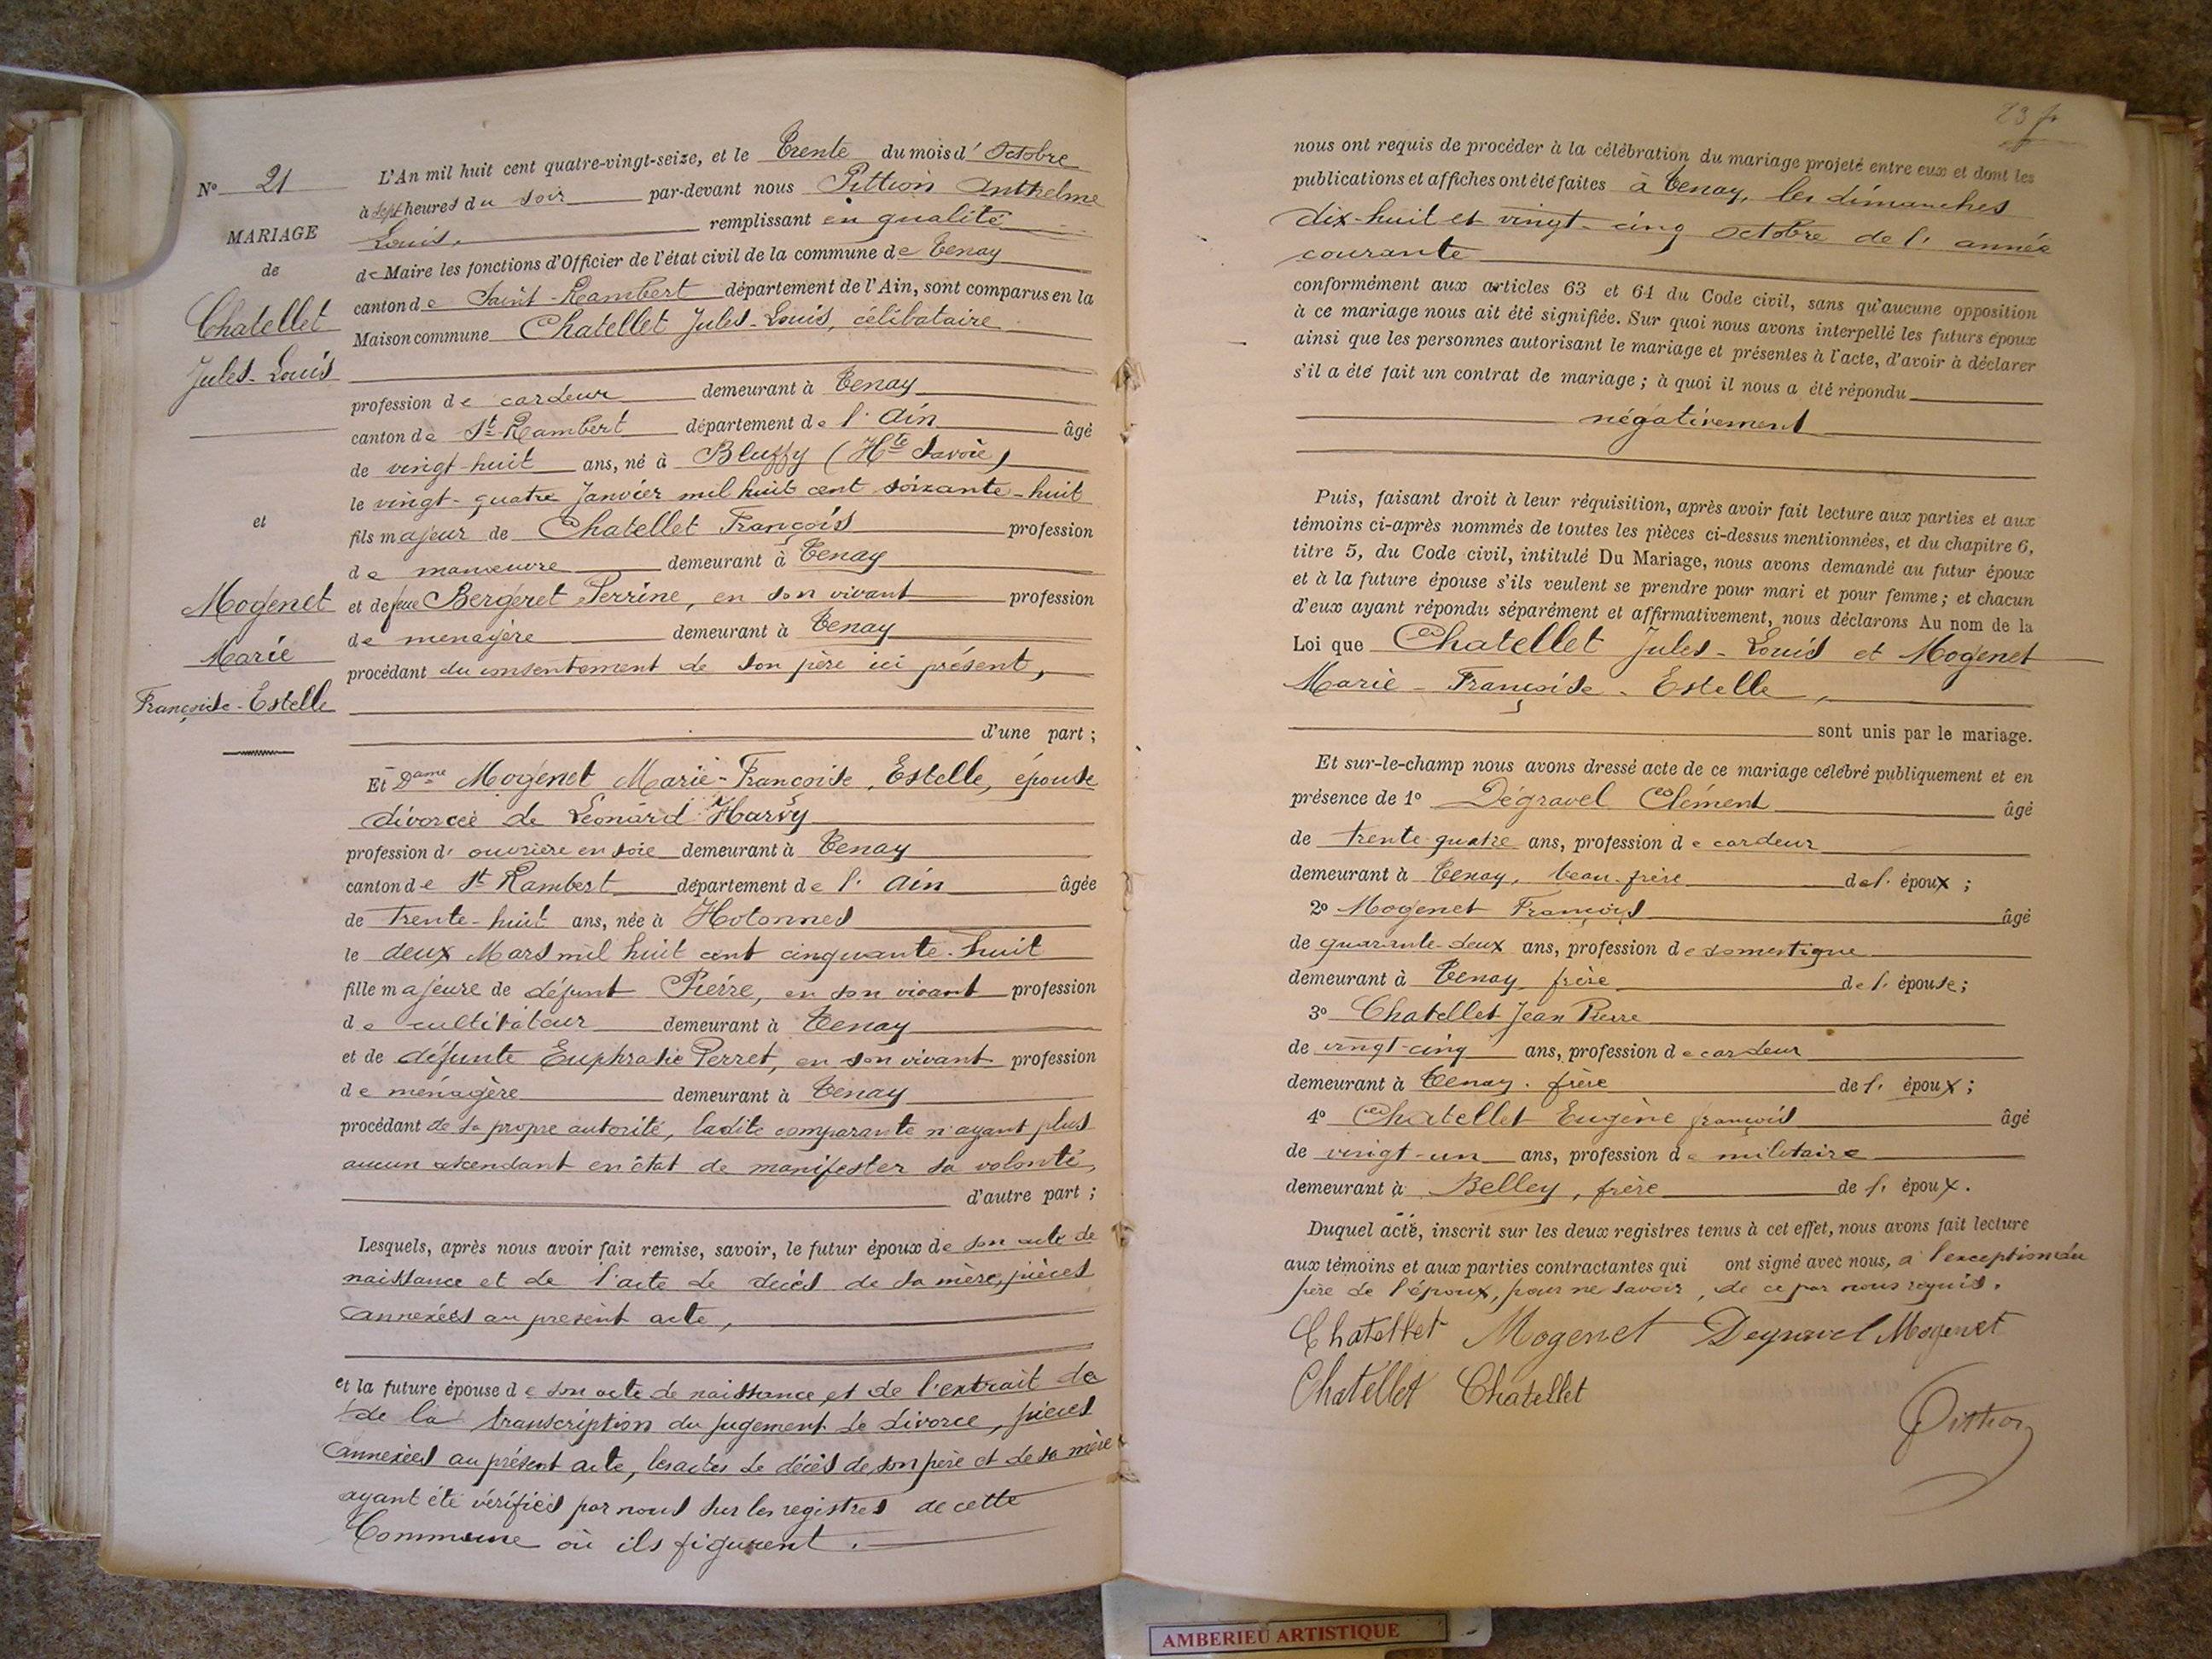 N° 21
MARIAGE
de
Chatellet
Jules-Louis
et
Mogenet
Marie
Françoise-Estelle
L'An mil huit cent quatre-vingt-seize, et le Trente du mois d'Octobre
à sept heures du soir par-devant nous Pittion Anthelme
Louis, remplissant en qualité
de Maire les fonctions d'Officier de l'état civil de la commune de Tenay
canton de Saint-Rambert département de l'Ain, sont comparus en la
Maison commune Chatellet Jules-Louis, célibataire
profession de cardeur demeurant à Tenay
canton de St-Rambert département de l'Ain âgé
de vingt-huit ans, né à Bluffy (Hte Savoie)
le vingt-quatre Janvier mil huit cent soixante-huit
fils majeur de Chatellet François profession
de manœuvre demeurant à Tenay
et de feue Bergeret Perrine, en son vivant profession
de ménagère demeurant à Tenay
procédant du consentement de son père ici présent,
d'une part ;
Et Dame Mogenet Marie-Françoise, Estelle, épouse
divorcée de Léonard Harvy
profession d' ouvrière en soie demeurant à Tenay
canton de St Rambert département de l'Ain âgée
de trente-huit ans, née à Hotonnes
le deux Mars mil huit cent cinquante-huit
fille majeure de défunt Pierre, en son vivant profession
de cultivateur demeurant à Tenay
et de défunte Euphrasie Perret, en son vivant profession
de ménagère demeurant à Tenay
procédant de sa propre autorité, ladite comparante n'ayant plus
aucun ascendant en état de manifester sa volonté,
d'autre part ;
Lesquels, après nous avoir fait remise, savoir, le futur époux de son acte de
naissance et de l'acte de décès de sa mère, pièces
annexées au présent acte,
et la future épouse de son acte de naissance et de l'extrait de
de la transcription du jugement de divorce, pièces
annexées au présent acte, les actes de décès de son père et de sa mère
ayant été vérifiés par nous sur les registres de cette
Commune où ils figurent.
nous ont requis de procéder à la célébration du mariage projeté entre eux et dont les
publications et affiches ont été faites à Tenay, les dimanches
dix-huit et vingt-cinq octobre de l'année
courante
conformément aux articles 63 et 64 du Code civil, sans qu'aucune opposition
à ce mariage nous ait été signifiée. Sur quoi nous avons interpellé les futurs époux
ainsi que les personnes autorisant le mariage et présentes à l'acte, d'avoir à déclarer
s'il a été fait un contrat de mariage ; à quoi il nous a été répondu
négativement
Puis, faisant droit à leur réquisition, après avoir fait lecture aux parties et aux
témoins ci-après nommés de toutes les pièces ci-dessus mentionnées, et du chapitre 6,
titre 5, du Code civil, intitulé Du Mariage, nous avons demandé au futur époux
et à la future épouse s'ils veulent se prendre pour mari et pour femme ; et chacun
d'eux ayant répondu séparément et affirmativement, nous déclarons Au nom de la
Loi que Chatellet Jules-Louis et Mogenet
Marie-Françoise-Estelle,
sont unis par le mariage.
Et sur-le-champ nous avons dressé acte de ce mariage célébré publiquement et en
présence de 1° Dégravel Clément âgé
de trente-quatre ans, profession de cardeur
demeurant à Tenay, beau-frère de l'époux ;
2° Mogenet François âgé
de quarante-deux ans, profession de domestique
demeurant à Tenay frère de l'épouse ;
3° Chatellet Jean Pierre
de vingt-cinq ans, profession de cardeur
demeurant à Tenay. frère de l'époux ;
4° Chatellet Eugène françois âgé
de vingt-un ans, profession de militaire
demeurant à Belley, frère de l'époux.
Duquel acte, inscrit sur les deux registres tenus à cet effet, nous avons fait lecture
aux témoins et aux parties contractantes qui ont signé avec nous, à l'exception du
père de l'époux, pour ne savoir, de ce par nous requis.
Chatellet Mogenet Degravel Mogenet
Chatellet Chatellet
Pittion
AMBERIEU ARTISTIQUE